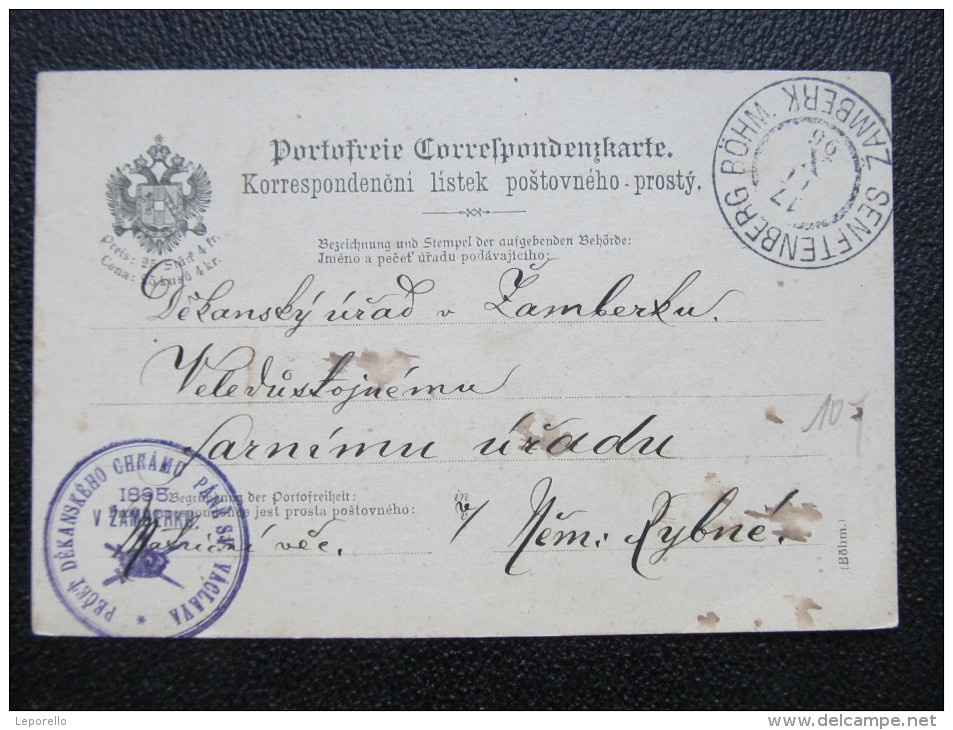 Portofreie Correspondenzkarte.
Korrespondenční lístek poštovného-prostý.
SENFTENBERG BÖHM
ŽAMBERK
17
96
Preis: 25 Stück 4 fr.
Cena: 25 kusů 4 kr.
Bezeichnung und Stempel der aufgebenden Behörde:
Jméno a pečeť úřadu podávajícího:
Děkanský úřad v Žamberku.
Veledůstojnému
farnímu úřadu
in
v
v Něm. Rybné.
Begründung der Portofreiheit:
jest prosta poštovného:
Matriční věc.
PEČEŤ DĚKANSKÉHO CHRÁMU PÁNĚ SV. VÁCLAVA *
1895
V ŽAMBERKU.
10
(Böhm.)
Leporello
http://www.delcampe.net